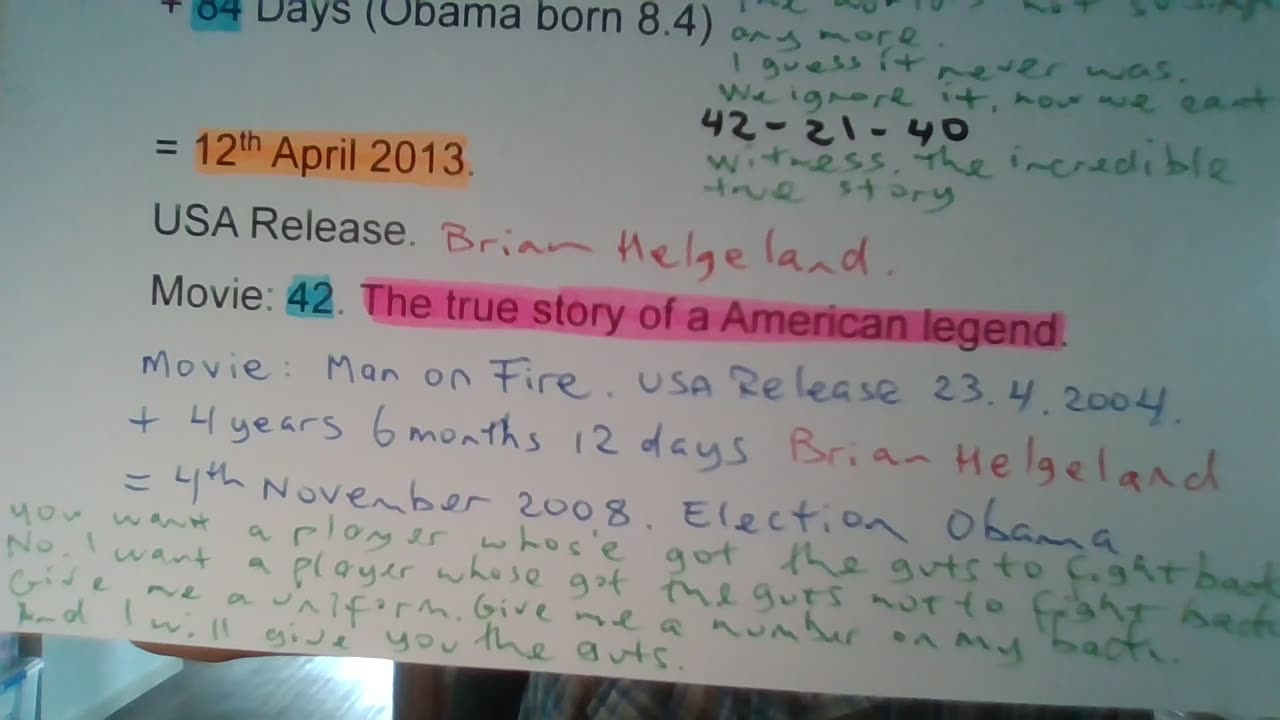 + 84 Days (Obama born 8.4)
any more.
I guess it never was.
We ignore it, now we cant
42-21-40
= 12th April 2013.
witness. the incredible
true story
USA Release. Brian Helgeland.
Movie: 42. The true story of a American legend.
Movie: Man on Fire. USA Release 23.4.2004.
+ 4 years 6 months 12 days Brian Helgeland
= 4th November 2008. Election Obama
You want a player whos'e got the guts to fight back
No. I want a player whose got the guts not to fight back
Give me a uniform. Give me a number on my back.
And I will give you the guts.